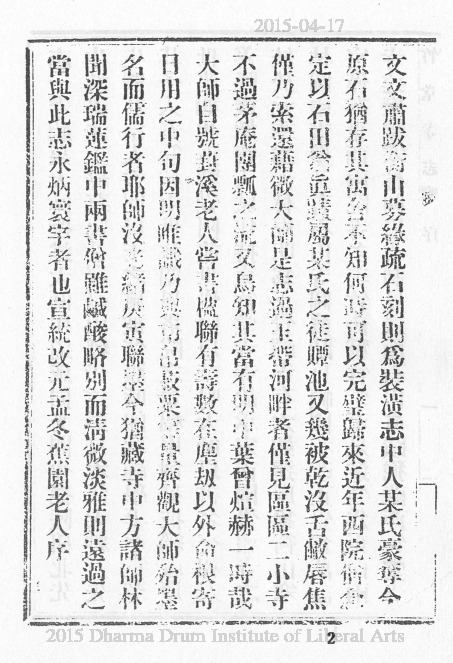 2015-04-17
文文肅跋衡山募緣疏石刻則為裝潢志中人某氏豪奪今
原石猶存其寓舍不知何時可以完璧歸來近年西院僧
定以石田翁真蹟屬某氏之徒贉池又幾被乾沒舌敝唇焦
僅乃索還藉微大師是志過玉帶河畔者僅見區區二小寺
不過茅庵團瓢之流又烏知其當有明中葉曾煊赫一時哉
大師自號蓑溪老人嘗書楹聯有壽數在塵劫以外命根寄
日用之中句因明唯識乃與布帛菽粟等量齊觀大師殆墨
名而儒行者耶師沒光緒庚寅聯墨今猶藏寺中方諸師林
聞深瑞蓮鑑中兩書僧雖鹹酸略別而清微淡雅則遠過之
當與此志永炳寰宇者也宣統改元孟冬蕉園老人序
2
2015 Dharma Drum Institute of Liberal Arts